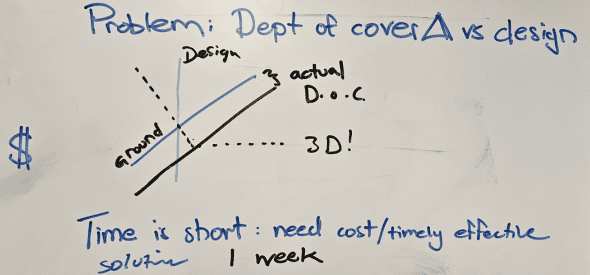 Problem: Dept of cover Δ vs design
Design
actual
D.o.C.
Ground
$
3D!
Time is short: need cost/timely effective
solution 1 week